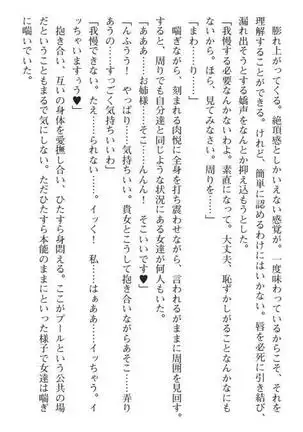 膨れ上がってくる。絶頂感としかいえない感覚が。一度味わっているからこそ、それを
理解することができる。けれど、簡単に認めるわけにはいかない。唇を必死に引き結び、
漏れ出そうとする嬌声をなんとか抑え込もうとした。
「我慢する必要なんかないわよ。素直になって。大丈夫、恥ずかしがることなんかなにも
ないから。ほら、見てみなさい。周りを……」
「まわ……り……」
喘ぎながら、刻まれる肉悦に全身を打ち震わせながら、言われるがままに周囲を見回す。
すると、周りでも自分達と同じような状況にある女達が何人もいた。
「あああ……お姉様……そこ……んんん！　そこいいです♥」
「んふうう！　やっぱり……気持ちいい。貴女とこうして抱き合いながらあそこ……弄り
あうの……すっごく気持ちいいわ」
「我慢できない。たえ……られない……。イッく！　私……はぁああ……イッちゃう。イ
ッちゃいますぅ♥」
抱き合い、互いの身体を愛撫し合い、ひたすら身悶える。ここがプールという公共の場
だということもまるで気にしない。ただひたすら本能のままにといった様子で女達は喘ぎ
に喘いでいた。